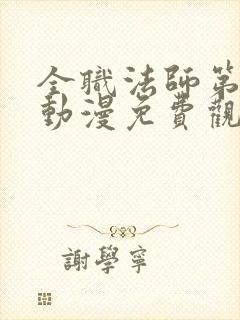 全職法師第
動漫免費觀
謝學寧